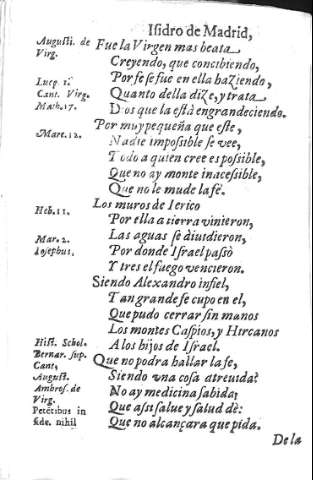 Isidro de Madrid,
Augusti. de
Virg.
Fue la Virgen mas beata
Creyendo, que concibiendo,
Luce. 1.
Por fe se fue en ella haziendo,
Cant. Virg.
Quanto della dize, y trata
Math. 17.
Dios que la està engrandeciendo.
Por muy pequeña que este,
Marc. 12.
Nadie impossible se vee,
Todo a quien cree es possible,
Que no ay monte inacessible,
Que no le mude la fè.
Los muros de Ierico
Heb. 11.
Por ella a tierra vinieron,
Mar. 2.
Las aguas se diuidieron,
Iosephus.
Por donde Israel passò
Y tres el fuego vencieron.
Siendo Alexandro infiel,
Tan grande fe cupo en el,
Que pudo cerrar sin manos
Los montes Caspios, y Hircanos
Hist. Schol.
A los hijos de Israel.
Bernar. sup.
Cant,
Que no podra hallar la fe,
August.
Siendo vna cosa atreuida?
Ambros. de
Virg.
No ay medicina sabida;
Petētibus in
Que assi salue y salud dè:
fide. nihil
Que no alcançara que pida.
De la